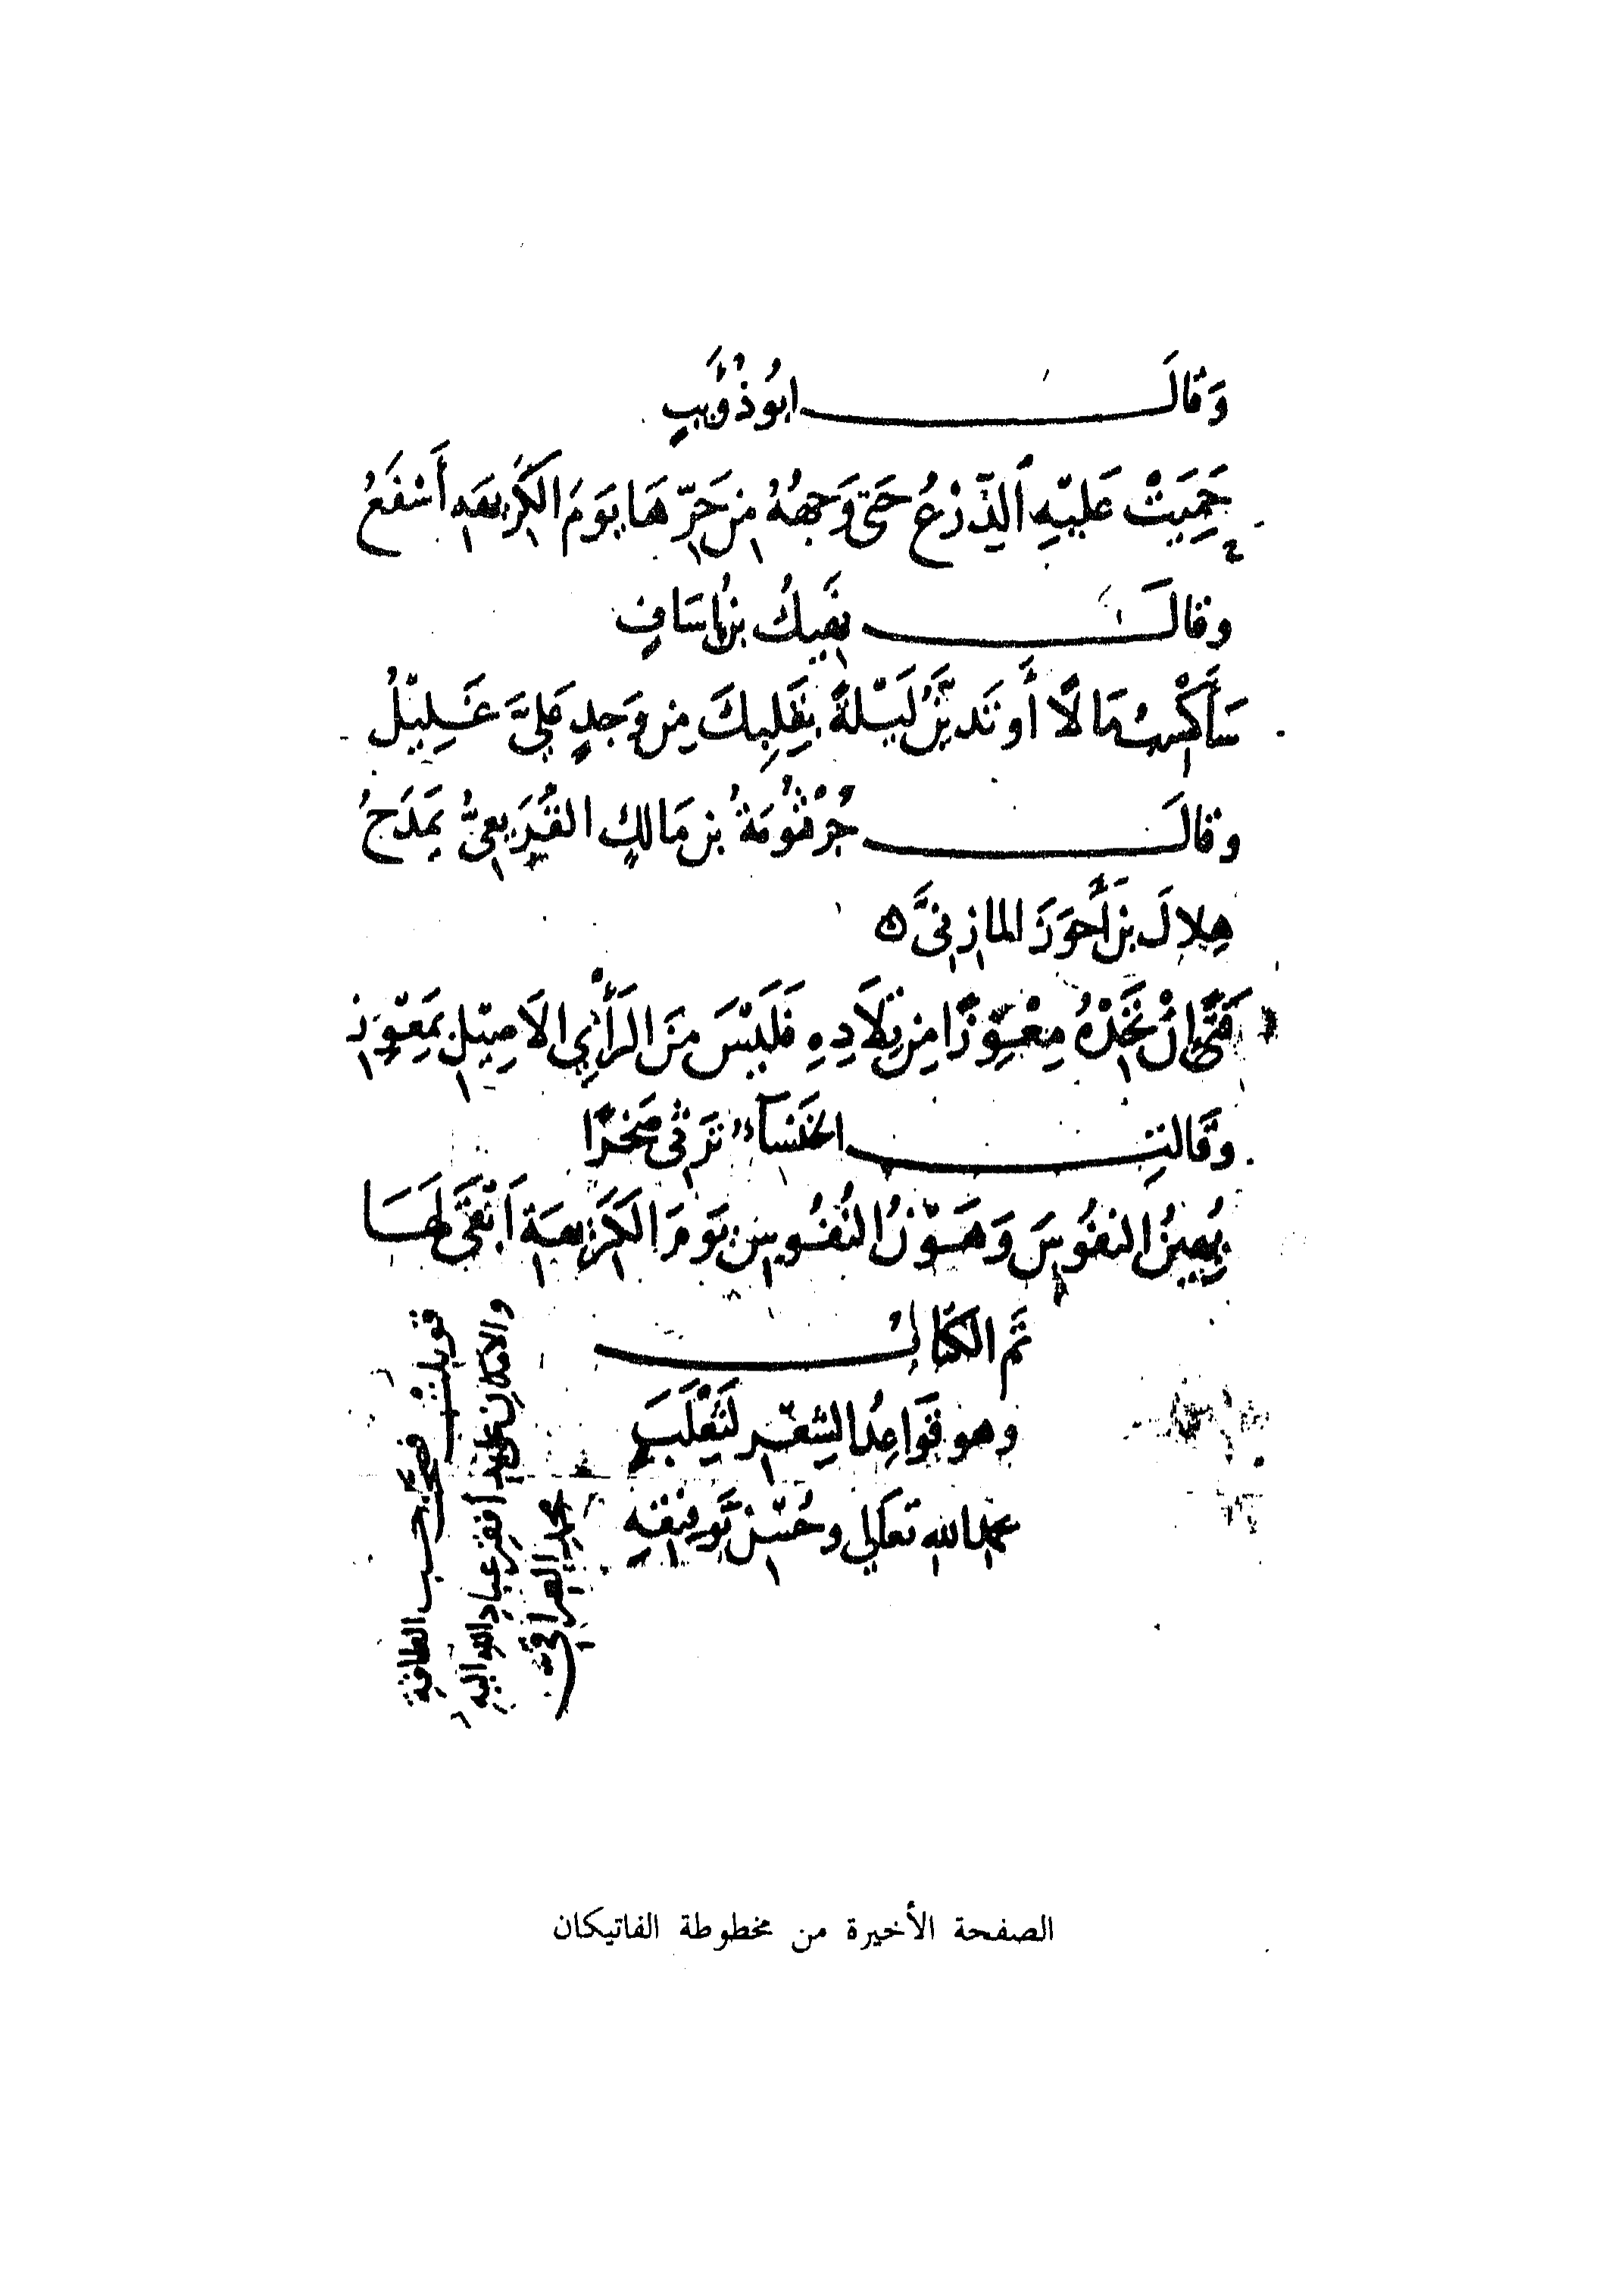 وَقَالَ ابُو ذُؤَيبٍ
حَمِيَتْ عَلَيْهِ الدِّرْعُ حَتى وَجهُهُ مِن حَرِّهَا يَومَ الكَرِيهَهِ أَسْفَعُ
وقالَ نَهِيكُ بنُ اسَافٍ
سَأَكْسِبُ مَالًا أَو تَدِيَّنَّ لَيْلةً بقَلبِكَ مِن وَجدٍ عَلَيَّ غَلِيْلُ
وقالَ جُرْثُومَةُ بن مَالكٍ القُرَيعِيُّ يَمدَحُ
هِلالَ بنَ أَحوَزَ المازنيَّ ه
فَتًى انْ تَجْدَهُ مِعْوِزًا مِن تِلَادِهِ فَلَيْسَ مِنَ الرَأْيِ الاصِيْلِ بمَعِوْزِ
وقَالتِ الخَنسَآء تَرثي صَخرًا
نُهِينُ النفُوسَ وَهَوْنُ النُفُوسِ يَومَ الكَرِيهَةِ ابْقَى لَهَا
تَم الكتَابُ
وهو قَوَاعِدُ الشِعْرِ لثَعْلَبَ
بحمد الله تعَالى وحُسْنِ تَوفيقِهِ
قوبلتْ فصحّت حسب الطاقة
والامكان على يد أفقر عباد الله اليه
محمد العراقي
الصفحة الأخيرة من مخطوطة الفاتيكان